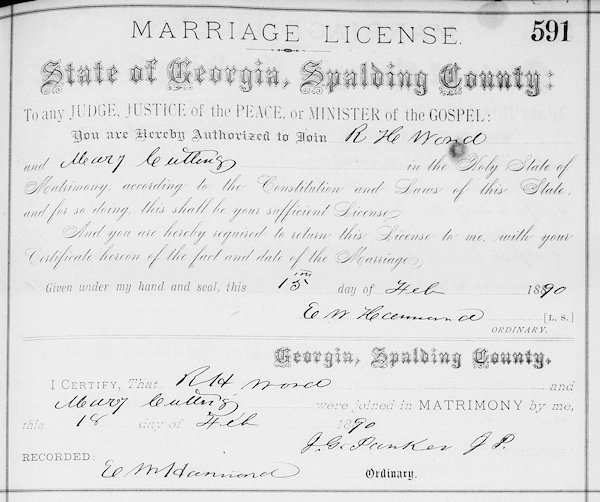 MARRIAGE LICENSE. 591
State of Georgia, Spalding County:
To any JUDGE, JUSTICE of the PEACE, or MINISTER of the GOSPEL:
You are Hereby Authorized to Join R H Word
and Mary Cutting in the Holy State of
Matrimony, according to the Constitution and Laws of this State,
and for so doing, this shall be your sufficient License.
And you are hereby required to return this License to me, with your
Certificate hereon of the fact and date of the Marriage.
Given under my hand and seal, this 15th day of Feb 1890
E W Hammond [L. S.]
ORDINARY.
Georgia, Spalding County.
I CERTIFY, That R H Word and
Mary Cutting were joined in MATRIMONY by me,
this 18 day of Feb 1890
J. G. Punker J P.
RECORDED:
E W Hammond Ordinary.